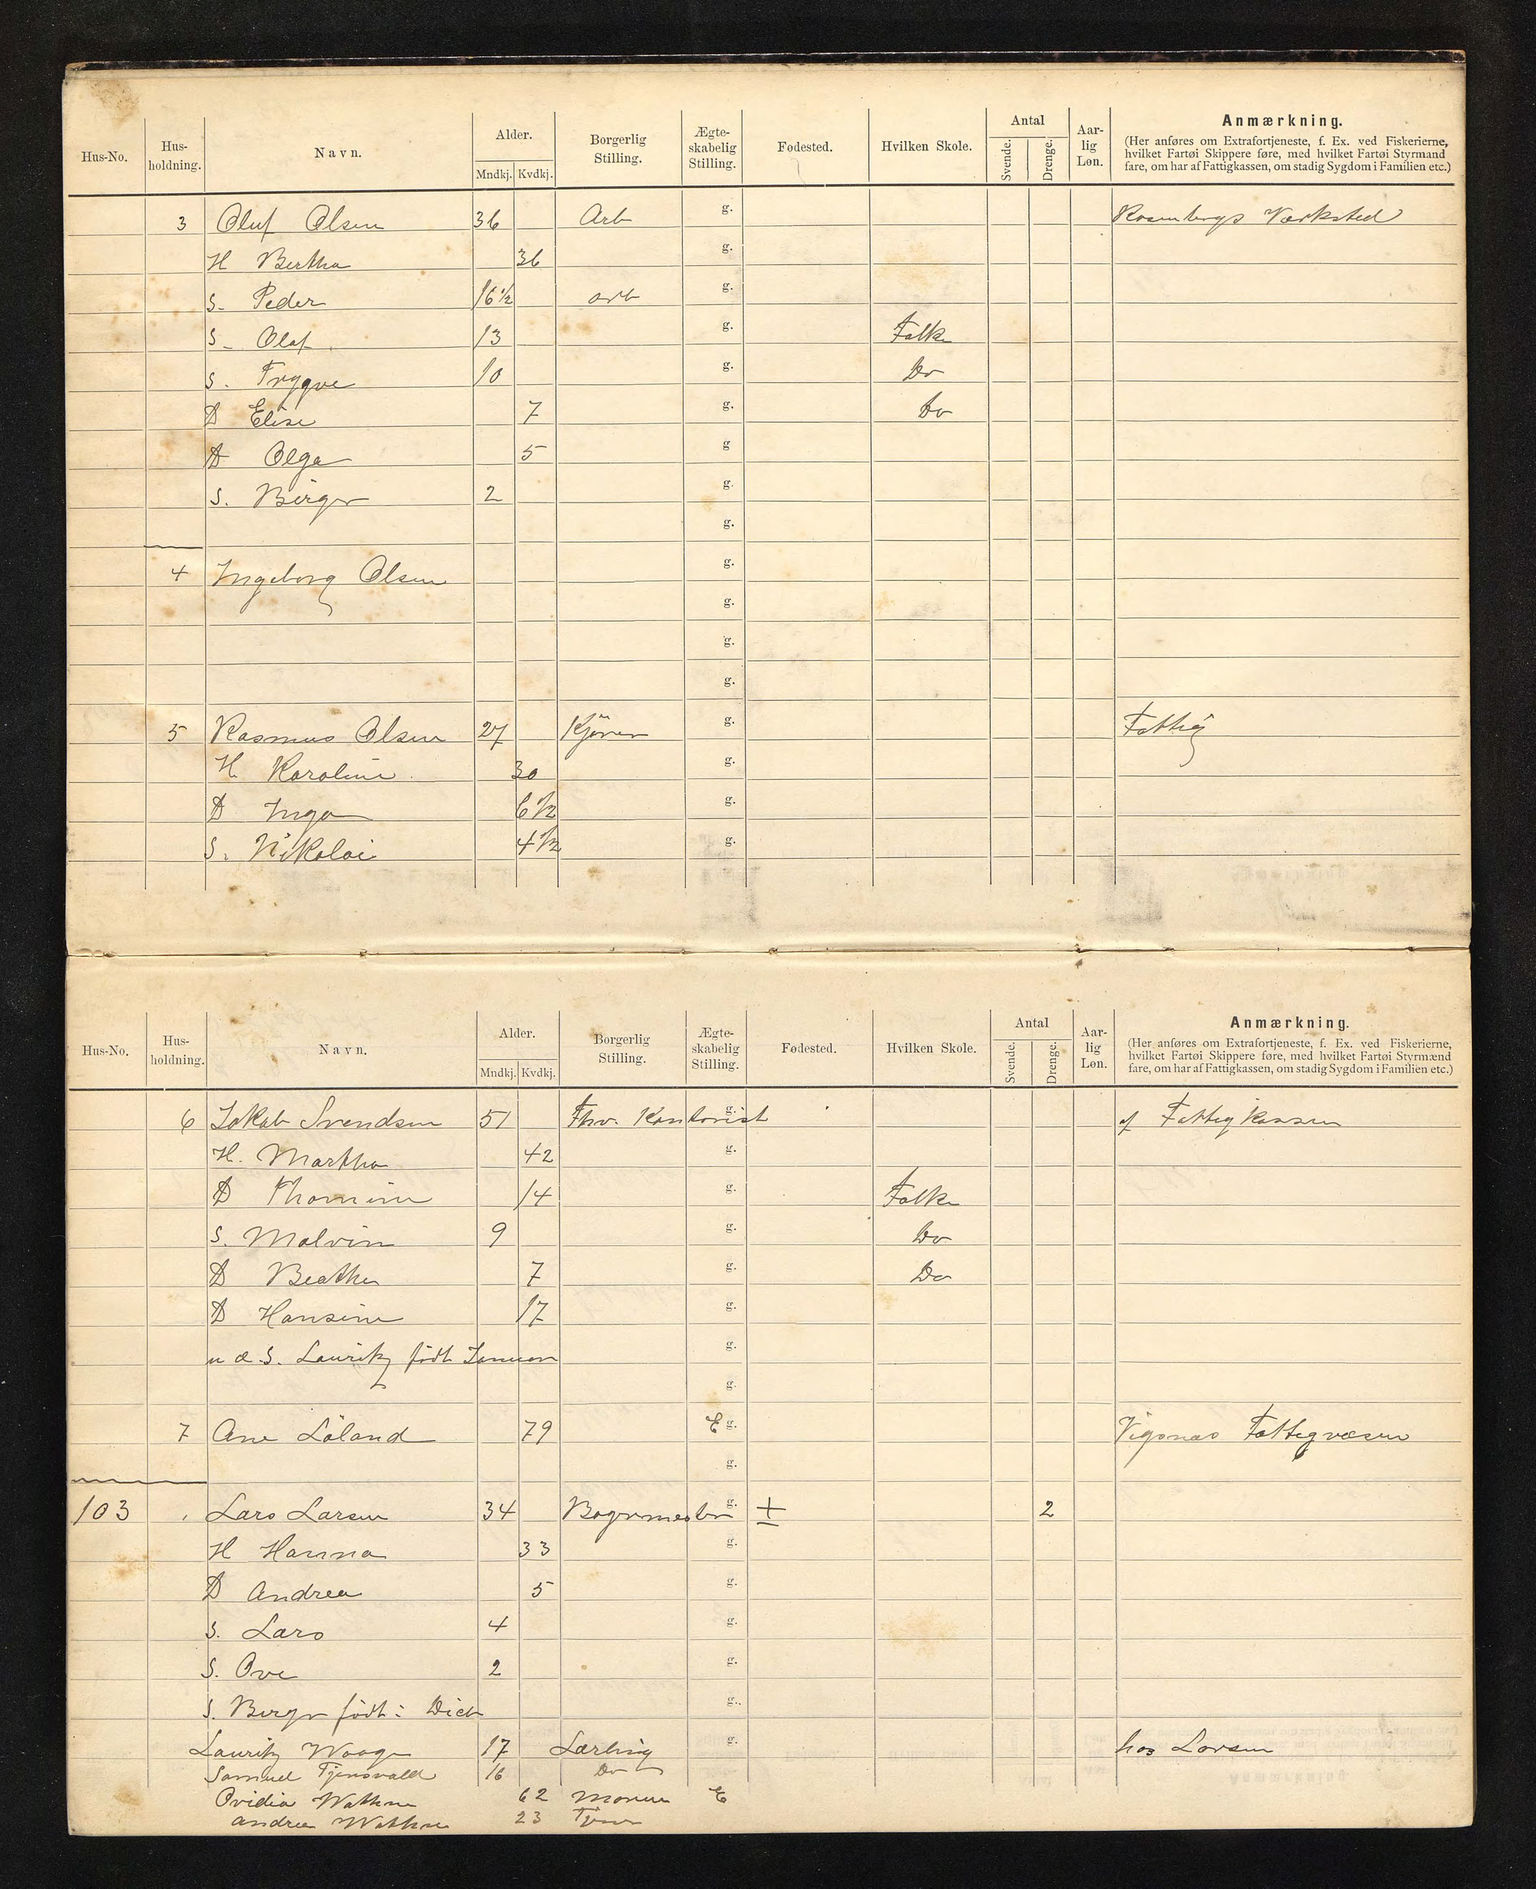 Hus-No. Hus-holdning. Navn. Alder. Mndkj. Kvdkj. Borgerlig Stilling. Ægte-skabelig Stilling. Fødested. Hvilken Skole. Antal Svende. Drenge. Aar-lig Løn. Anmærkning.
(Her anføres om Extrafortjeneste, f. Ex. ved Fiskerierne, hvilket Fartøi Skippere føre, med hvilket Fartøi Styrmænd fare, om har af Fattigkassen, om stadig Sygdom i Familien etc.)
3 Oluf Olsen 36 Arb g. Rosenbergs Værksted
H Bertha 36 g.
S. Peder 16 1/2 arb g.
S. Olaf 13 g. Folke
S. Trygve 10 g. Do
D Elise 7 g. Do
D Olga 5 g
S. Birger 2 g.
g.
4 Ingeborg Olsen g.
g.
g.
g.
5 Rasmus Olsen 27 Kjører g. Fattig
H. Karoline 30 g.
D Inga 6 1/2 g.
S. Nikolai 4 1/2 g.
Hus-No. Hus-holdning. Navn. Alder. Mndkj. Kvdkj. Borgerlig Stilling. Ægte-skabelig Stilling. Fødested. Hvilken Skole. Antal Svende. Drenge. Aar-lig Løn. Anmærkning.
(Her anføres om Extrafortjeneste, f. Ex. ved Fiskerierne, hvilket Fartøi Skippere føre, med hvilket Fartøi Styrmænd fare, om har af Fattigkassen, om stadig Sygdom i Familien etc.)
6 Jakob Svendsen 51 Fhv. Kontorist g. af Fattigkassen
H. Martha 42 g.
D Thomine 14 g. Folke
S. Malvin 9 g. Do
D Beathe 7 g. Do
D Hansine 17 g.
u æ S. Lauritz født Januar g.
g.
7 Ane Löland 79 E g. Vigsnæs Fattigvæsen
g.
103 1 Lars Larsen 34 Bagermester g. + 2
H Hanna 33 g.
D Andrea 5 g.
S. Lars 4 g.
S. Ove 2 g.
S. Berger født i Decb g.
Lauritz Waage 17 Lærling g. hos Larsen
Samuel Tjensvold 16 Do
Ovidia Wathne 62 Moren E
Andrea Wathne 23 Tjener